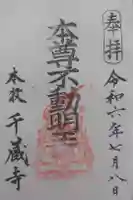 奉拝
令和六年七月八日
本尊不動明王
本牧千蔵寺